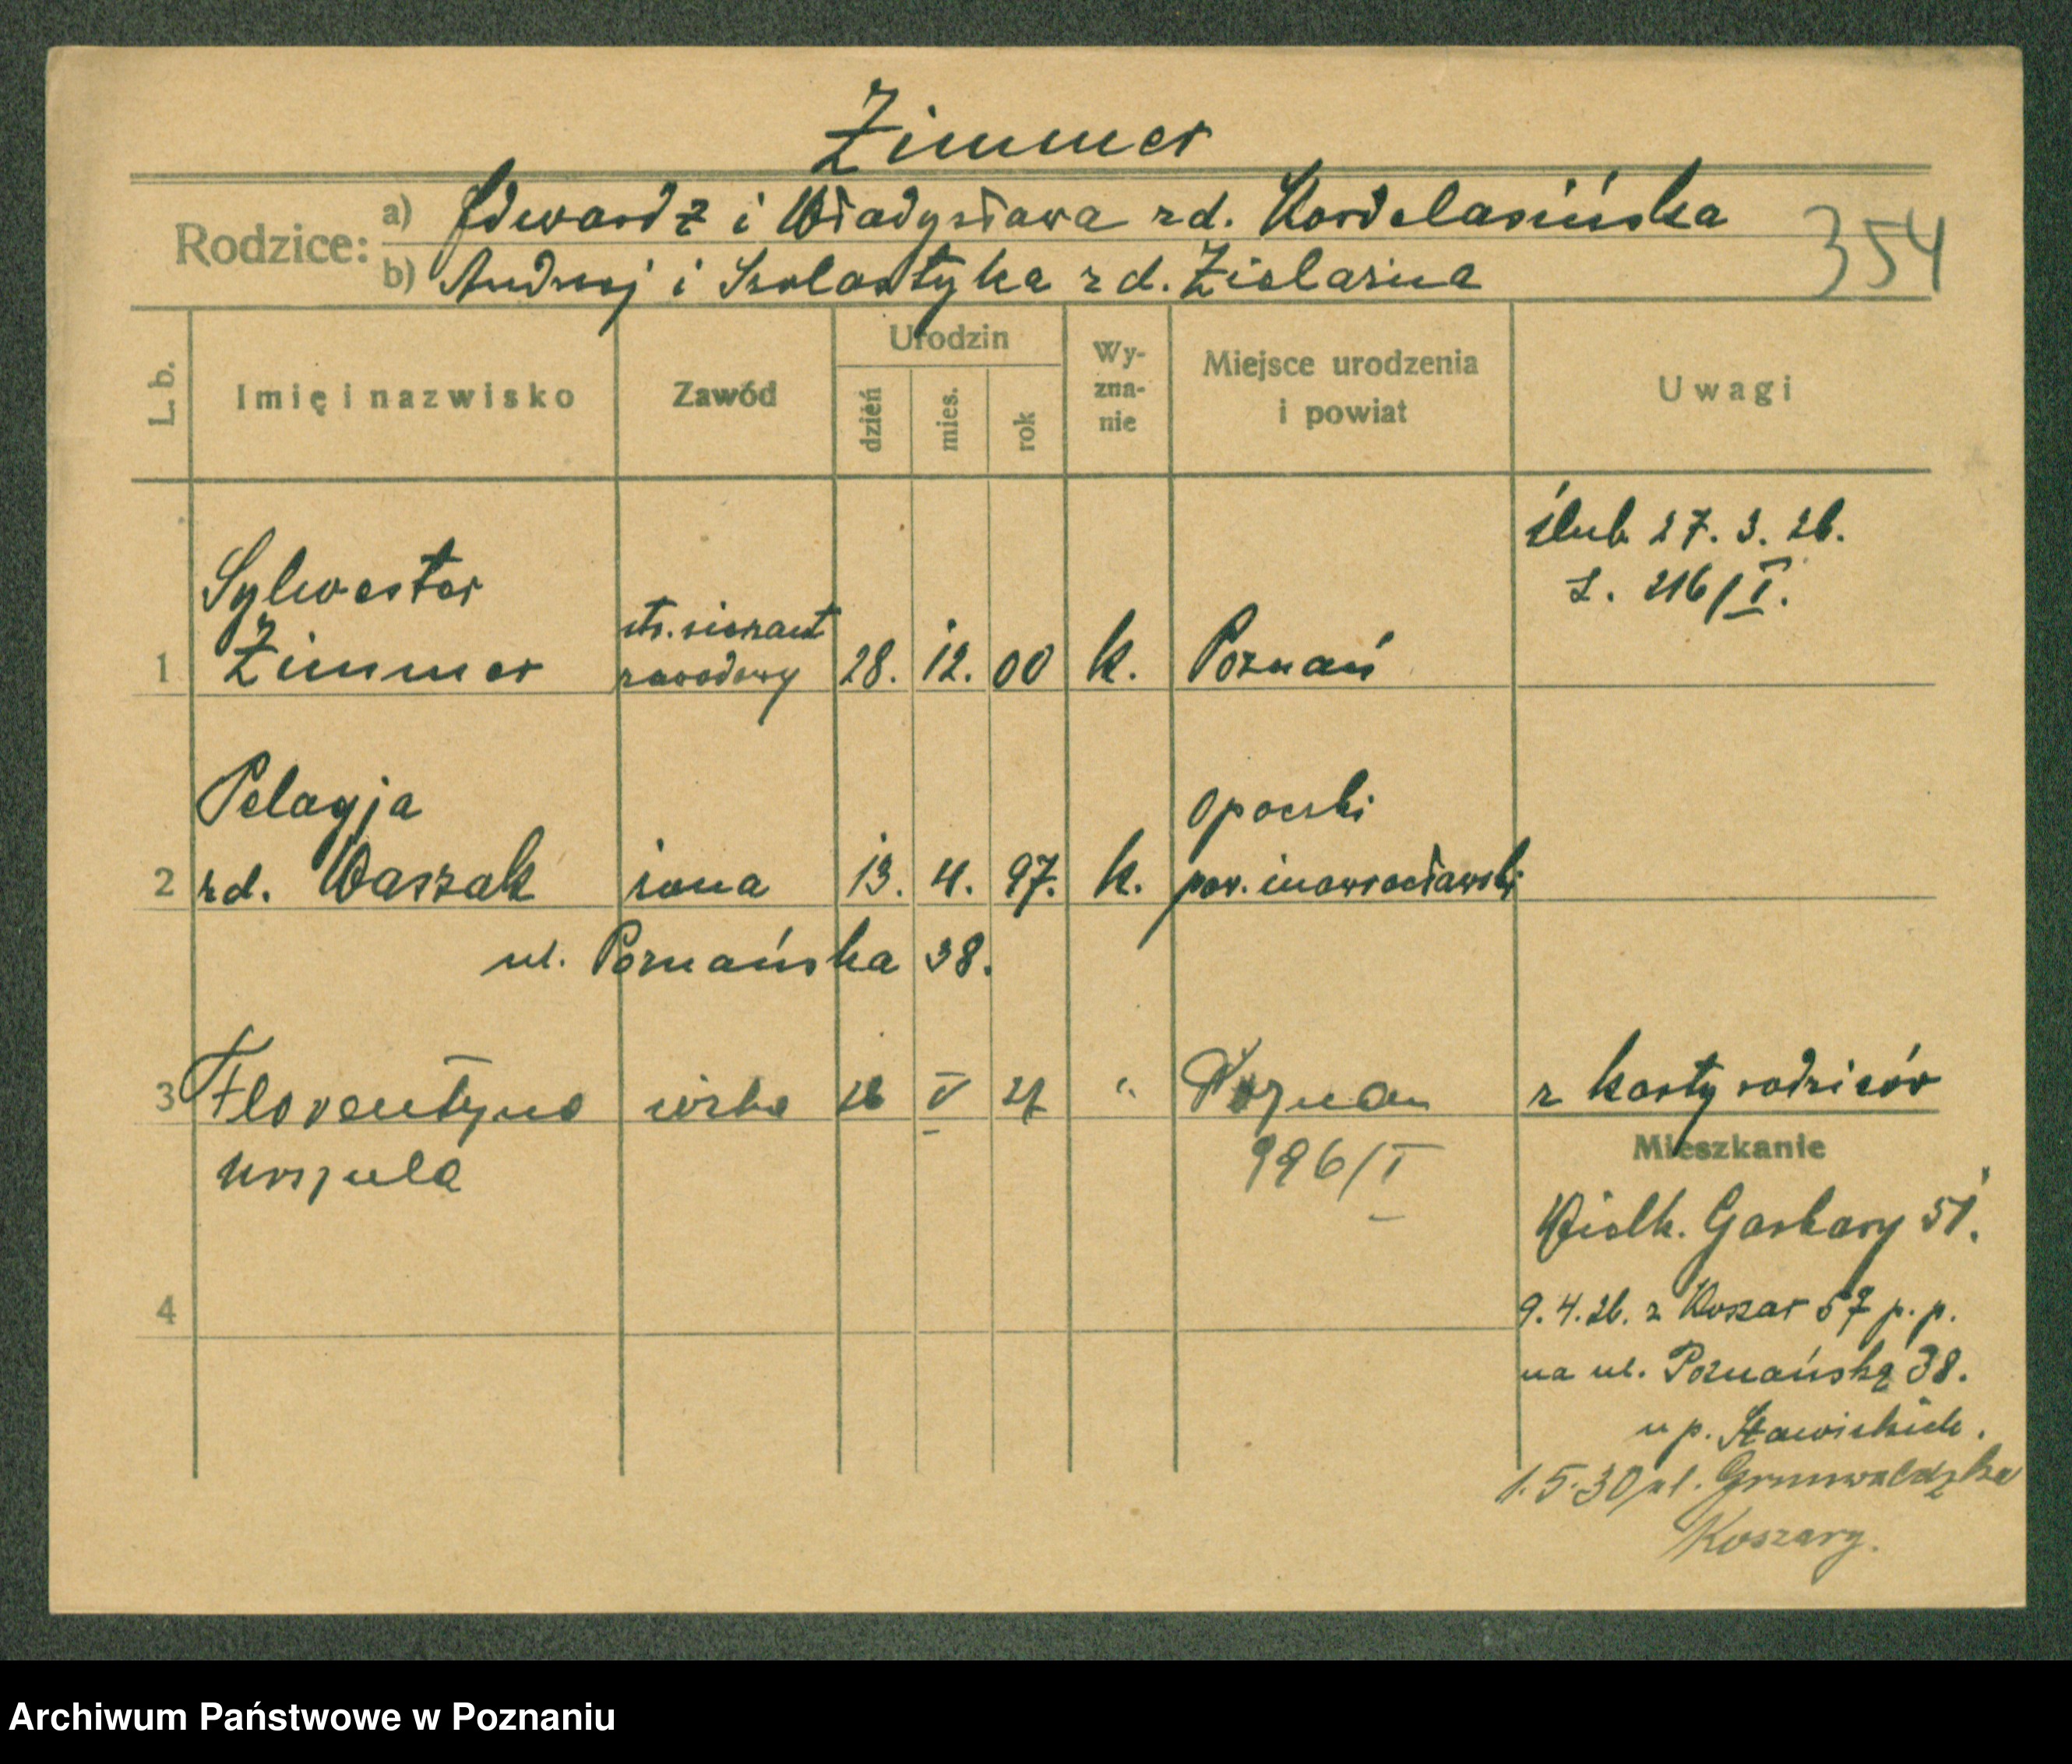 Zimmer
Rodzice:
a) Edward z i Władysława zd. Kordelasińska
b) Andrzej i Szolastyka zd. Zielazna
354
L. b.
Imię i nazwisko
Zawód
Urodzin
dzień
mies.
rok
Wy-
zna-
nie
Miejsce urodzenia
i powiat
Uwagi
ślub 27. 3. 26.
L. 216/I.
Sylwester
1 Zimmer
st. sierżant
zawodowy
28. 12. 00 k. Poznań
Pelagja
2 zd. Waszak żona 13. 4. 97. k.
Opoczki
pow. inowrocławski
ul. Poznańska 38.
3 Florentyna córka 26 V 27 " Poznań z karty rodziców
Urszula
996/I
Mieszkanie
Wielk. Garbary 51.
4
9.4.26. z Koszar 57 p. p.
na ul. Poznańską 38.
u p. Stawickich.
1.5.30 ul. Grunwaldzka
Koszary.
Archiwum Państwowe w Poznaniu